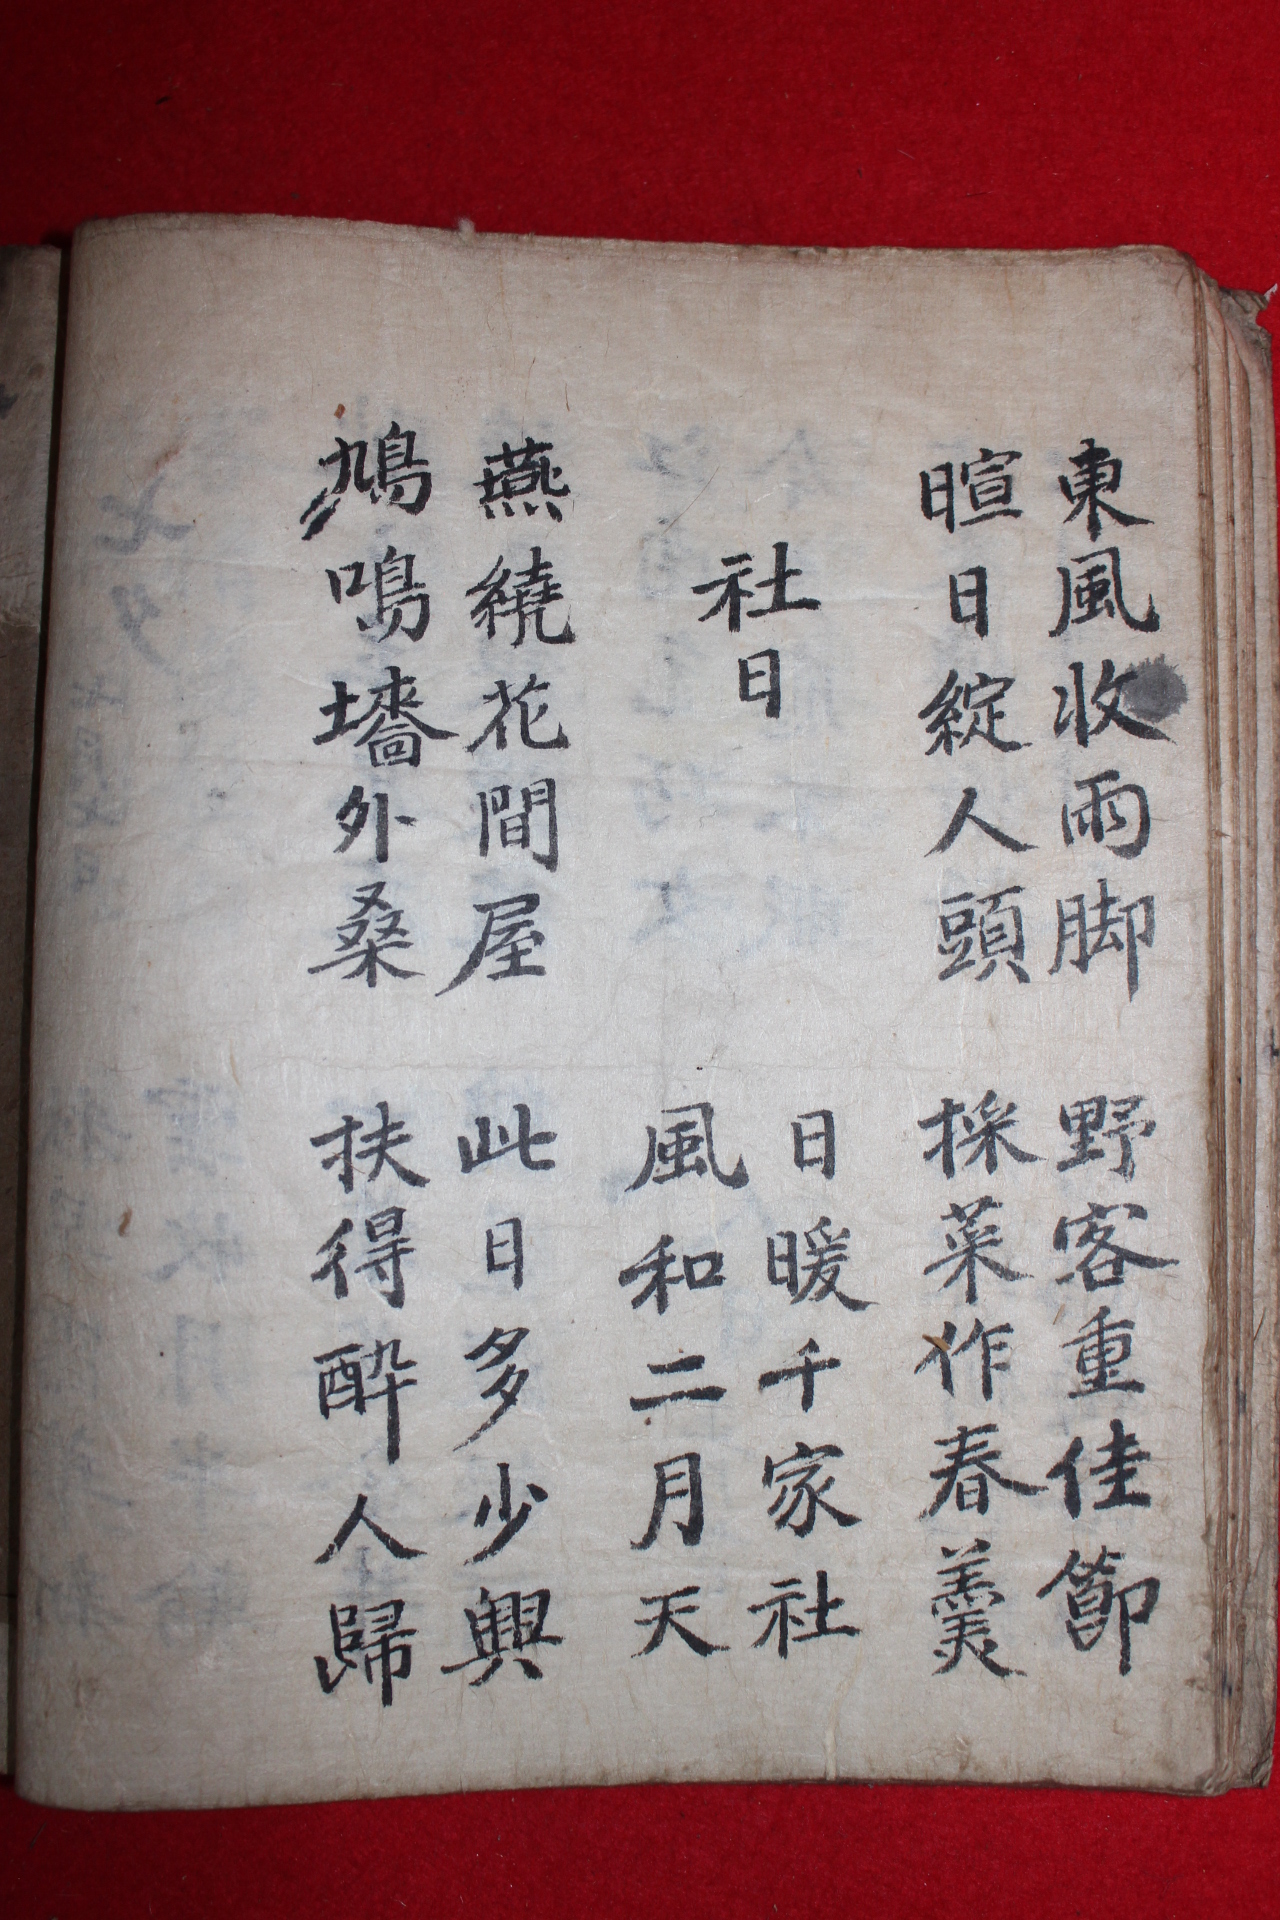 東風收雨脚 野客重佳節
暄日綻人頭 採菜作春羹
社日 日暖千家社
風和二月天
燕繞花間屋 此日多少興
鳩鳴墻外桑 扶得酔人歸